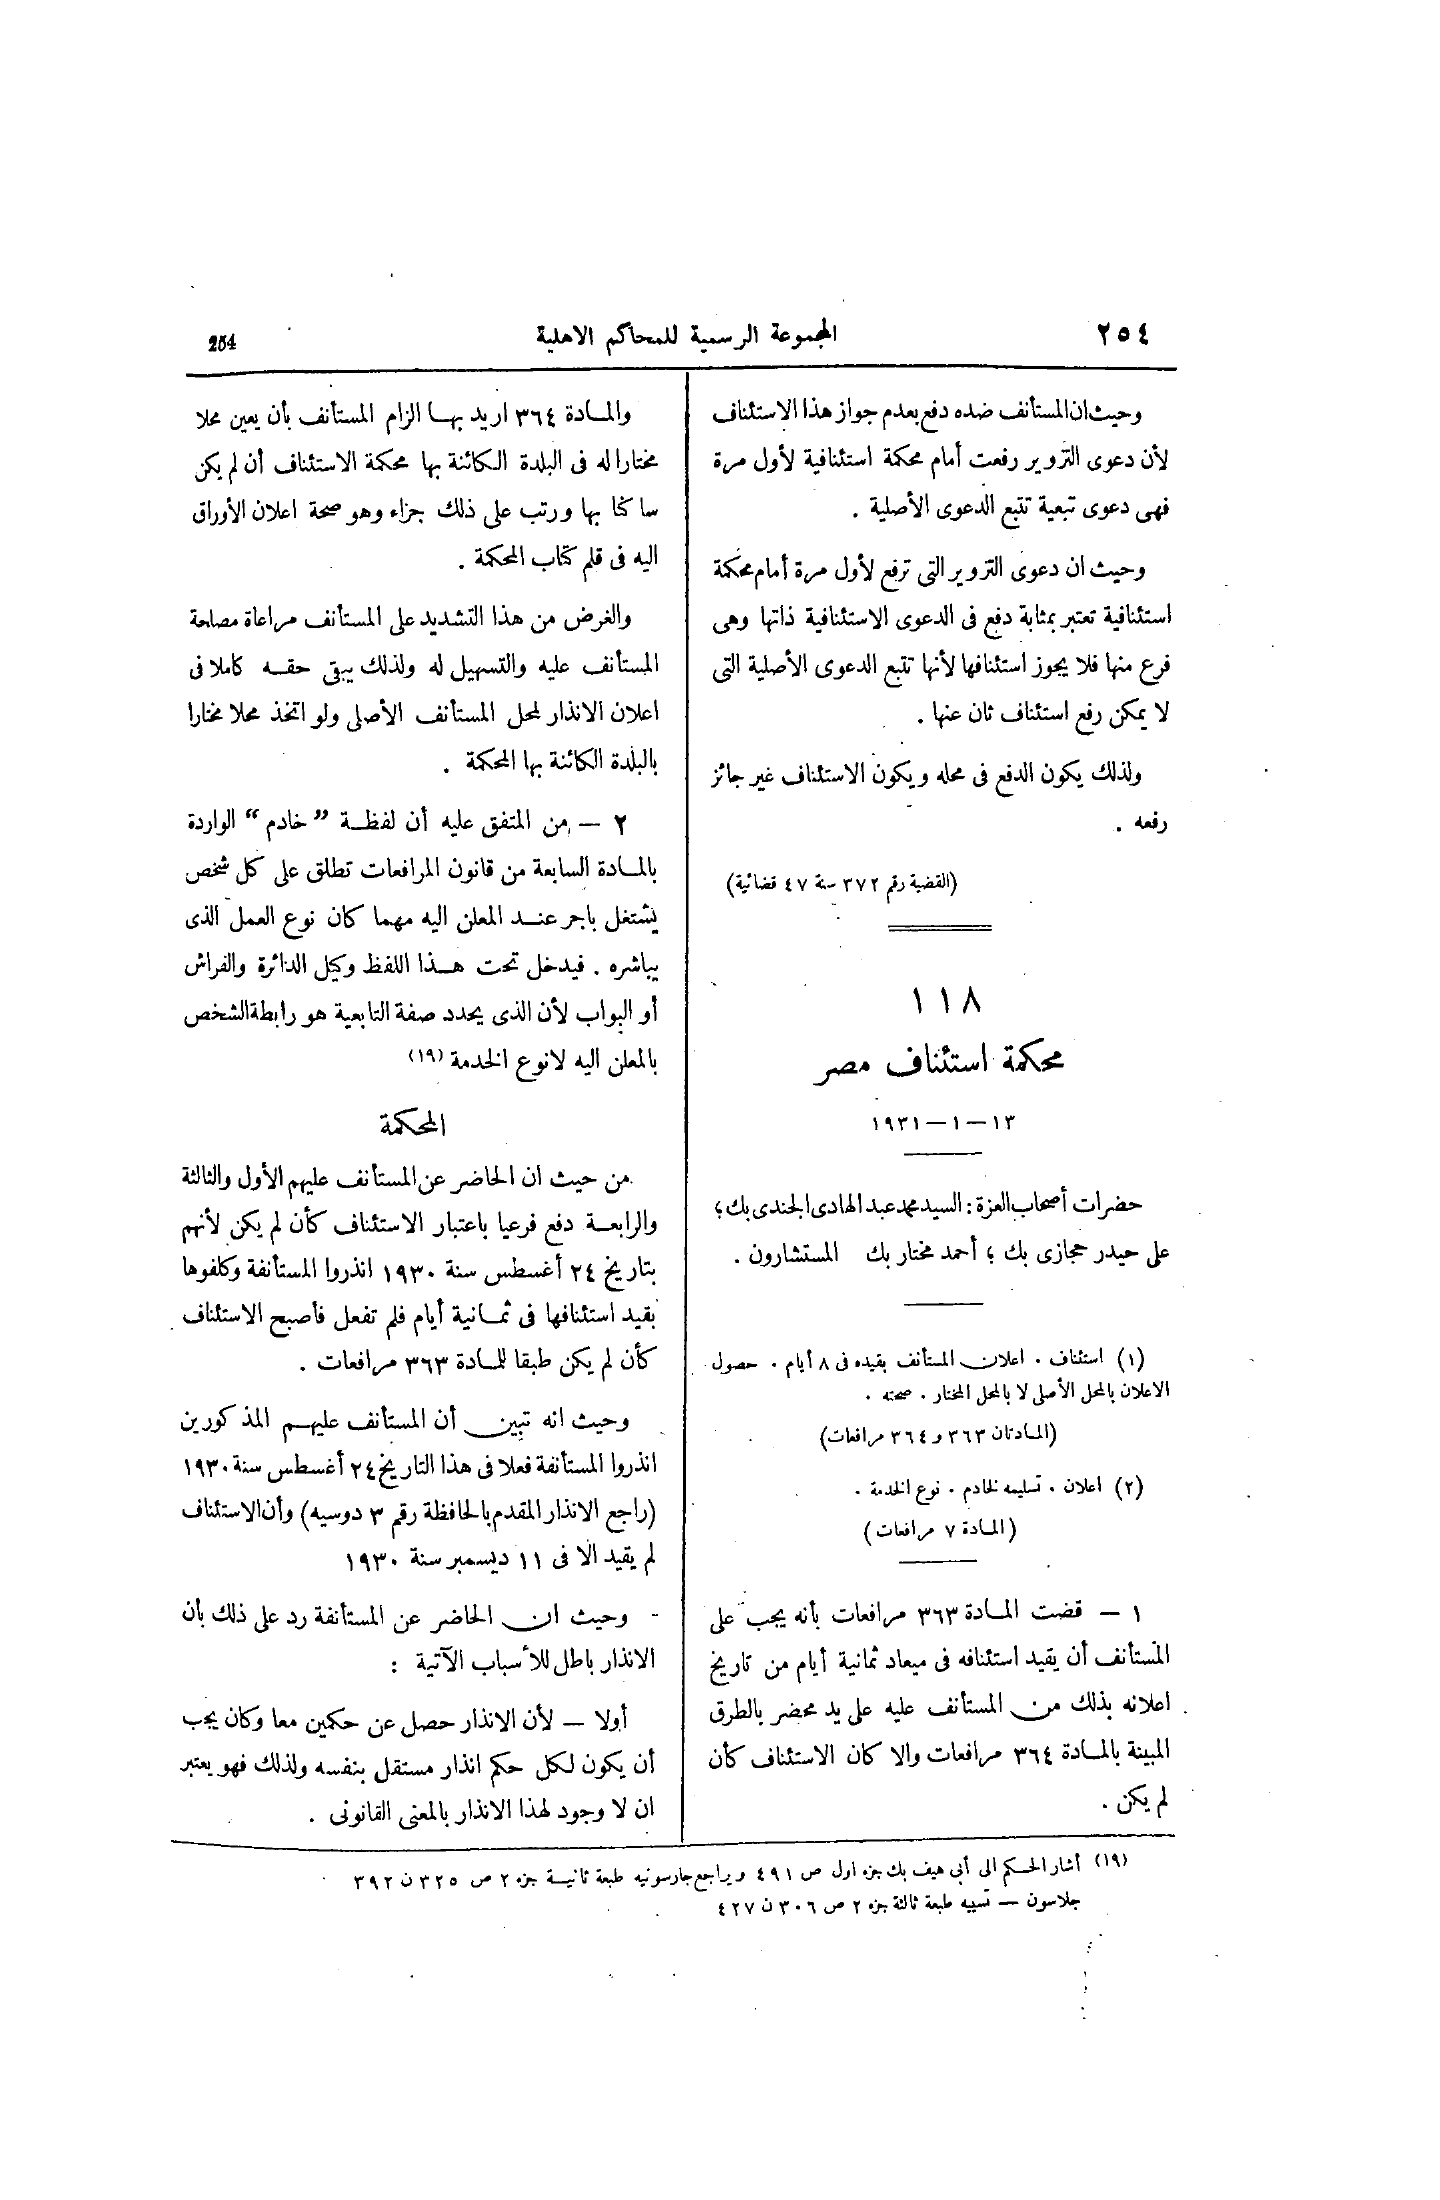 ٢٥٤
المجموعة الرسمية للمحاكم الاهلية
254
وحيث ان المستأنف ضده دفع بعدم جواز هذا الاستئناف
لأن دعوى التزوير رفعت أمام محكمة استئنافية لأول مرة
فهى دعوى تبعية تتبع الدعوى الأصلية .
وحيث ان دعوى التزوير التى ترفع لأول مرة أمام محكمة
استئنافية تعتبر بمثابة دفع فى الدعوى الاستئنافية ذاتها وهى
فرع منها فلا يجوز استئنافها لأنها تتبع الدعوى الأصلية التى
لا يمكن رفع استئناف ثان عنها .
ولذلك يكون الدفع فى محله ويكون الاستئناف غير جائز
رفعه .
(القضية رقم ٣٧٢ سنة ٤٧ قضائية)
١١٨
محكمة استئناف مصر
١٣ – ١ – ١٩٣١
حضرات أصحاب العزة : السيد محمد عبد الهادى الجندى بك ؛
على حيدر حجازى بك ؛ أحمد مختار بك المستشارون .
(١) استئناف . اعلان المستأنف بقيده فى ٨ أيام . حصول
الاعلان بالمحل الأصلى لا بالمحل المختار . صحته .
(المادتان ٣٦٣ و ٣٦٤ مرافعات)
(٢) اعلان . تسليمه لخادم . نوع الخدمة .
(المادة ٧ مرافعات)
١ – قضت المادة ٣٦٣ مرافعات بأنه يجب على
المستأنف أن يقيد استئنافه فى ميعاد ثمانية أيام من تاريخ
اعلانه بذلك من المستأنف عليه على يد محضر بالطرق
المبينة بالمادة ٣٦٤ مرافعات والا كان الاستئناف كأن
لم يكن .
والمادة ٣٦٤ اريد بها الزام المستأنف بأن يعين محلا
مختارا له فى البلدة الكائنة بها محكمة الاستئناف أن لم يكن
ساكنا بها ورتب على ذلك جزاء وهو صحة اعلان الأوراق
اليه فى قلم كتاب المحكمة .
والغرض من هذا التشديد على المستأنف مراعاة مصلحة
المستأنف عليه والتسهيل له ولذلك يبقى حقه كاملا فى
اعلان الانذار لمحل المستأنف الأصلى ولو اتخذ محلا مختارا
بالبلدة الكائنة بها المحكمة .
٢ – من المتفق عليه أن لفظة ”خادم“ الواردة
بالمادة السابعة من قانون المرافعات تطلق على كل شخص
يشتغل باجر عند المعلن اليه مهما كان نوع العمل الذى
يباشره . فيدخل تحت هذا اللفظ وكيل الدائرة والفراش
أو البواب لأن الذى يحدد صفة التابعية هو رابطة الشخص
بالمعلن اليه لا نوع الخدمة (١٩)
المحكمة
من حيث ان الحاضر عن المستأنف عليهم الأول والثالثة
والرابعة دفع فرعيا باعتبار الاستئناف كأن لم يكن لأنهم
بتاريخ ٢٤ أغسطس سنة ١٩٣٠ انذروا المستأنفة وكلفوها
بقيد استئنافها فى ثمانية أيام فلم تفعل فأصبح الاستئناف
كأن لم يكن طبقا للمادة ٣٦٣ مرافعات .
وحيث انه تبين أن المستأنف عليهم المذكورين
انذروا المستأنفة فعلا فى هذا التاريخ ٢٤ أغسطس سنة ١٩٣٠
(راجع الانذار المقدم بالحافظة رقم ٣ دوسيه) وأن الاستئناف
لم يقيد الا فى ١١ ديسمبر سنة ١٩٣٠
وحيث ان الحاضر عن المستأنفة رد على ذلك بأن
الانذار باطل للأسباب الآتية :
أولا – لأن الانذار حصل عن حكمين معا وكان يجب
أن يكون لكل حكم انذار مستقل بنفسه ولذلك فهو يعتبر
ان لا وجود لهذا الانذار بالمعنى القانونى .
(١٩) أشار الحكم الى أبى هيف بك جزء اول ص ٤٩١ ويراجع جارسونيه طبعة ثانية جزء ٢ ص ٣٢٥ ن ٣٩٢
جلاسون – تسييه طبعة ثالثة جزء ٢ ص ٣٠٦ ن ٤٢٧